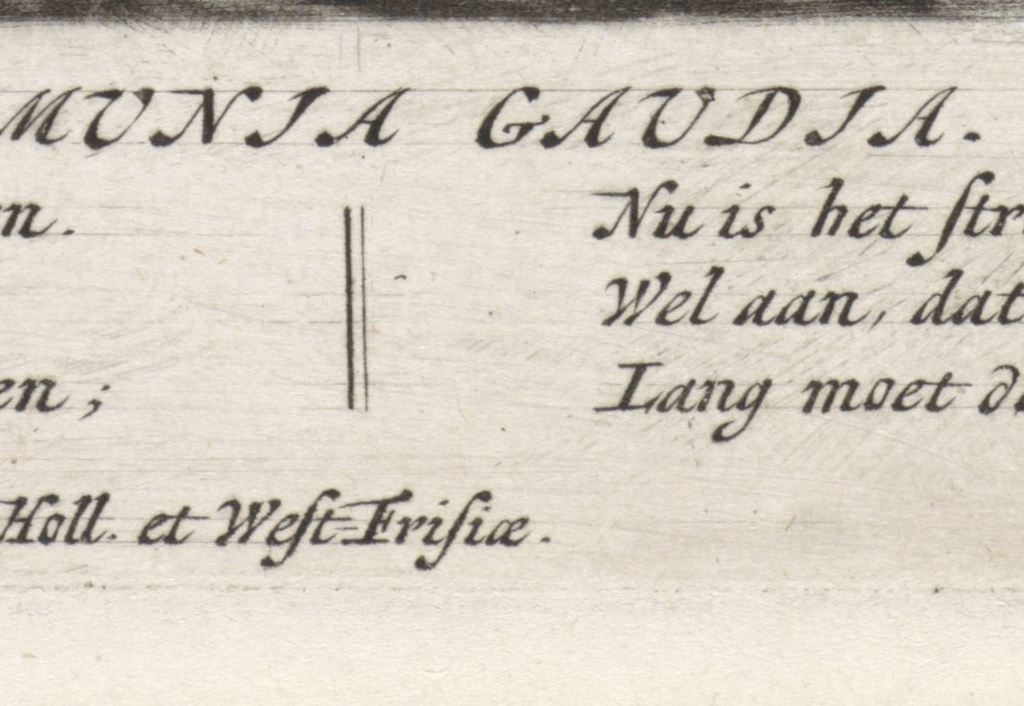 MUNIA GAUDIA.
n.
Nu is het ſtr
Wel aan, dat
en;
Lang moet d
Holl. et Weſt-Friſiæ.